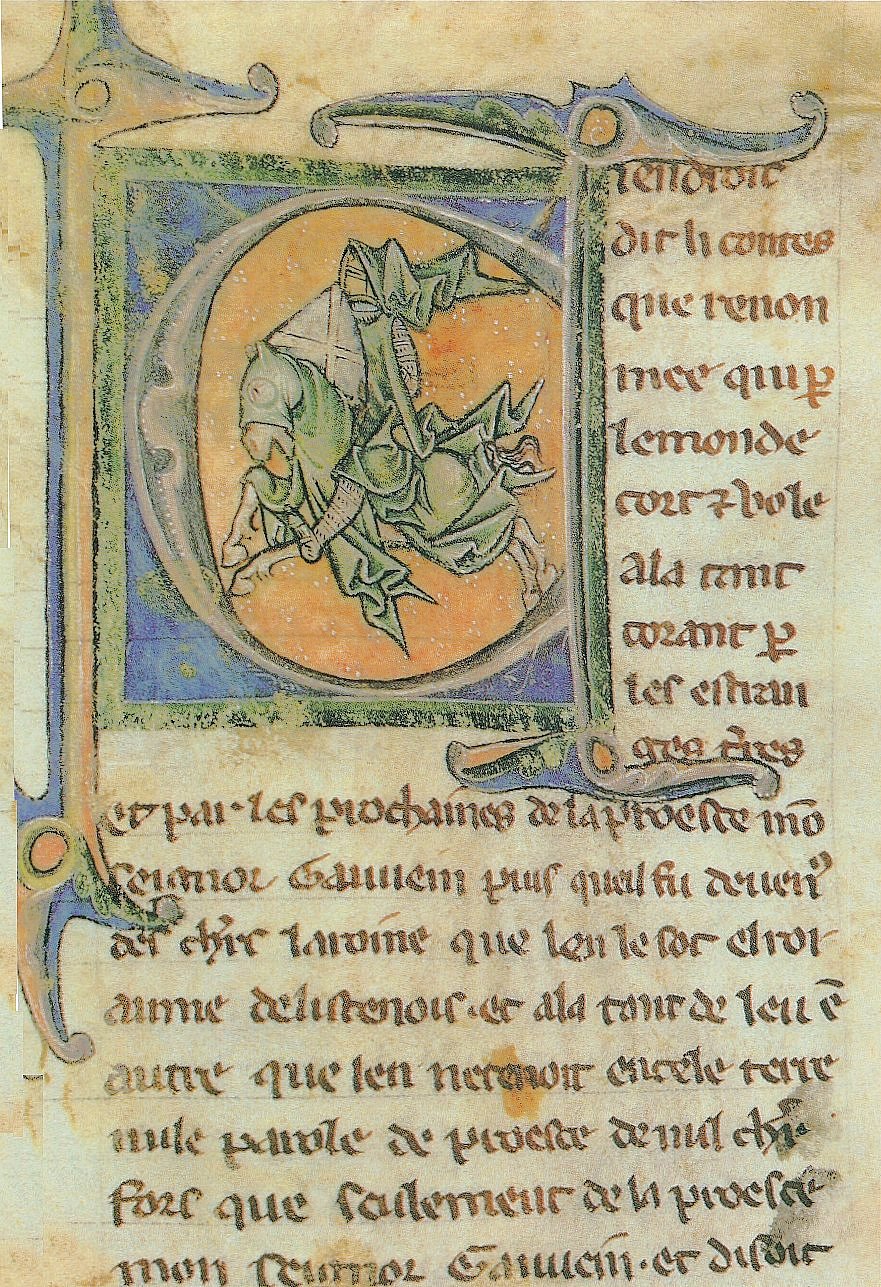 iendroit
dit li contes
que renon
mee qui ꝑ
le monde
cort ⁊ vole
ala tant
corant ꝑ
les estran
ges t̃res
et par les prochaines de la proesce mõ
seignor Gauuein puis queil fu
des chr̃s la roine que len le sot el roi
aume de listenois · et ala tant de leu ẽ
autre que len ne tenoit en cele terre
nule parole de proesce de nul chr̃
fors que seulement de la proesce
mon seignor Gauuein · et disoit